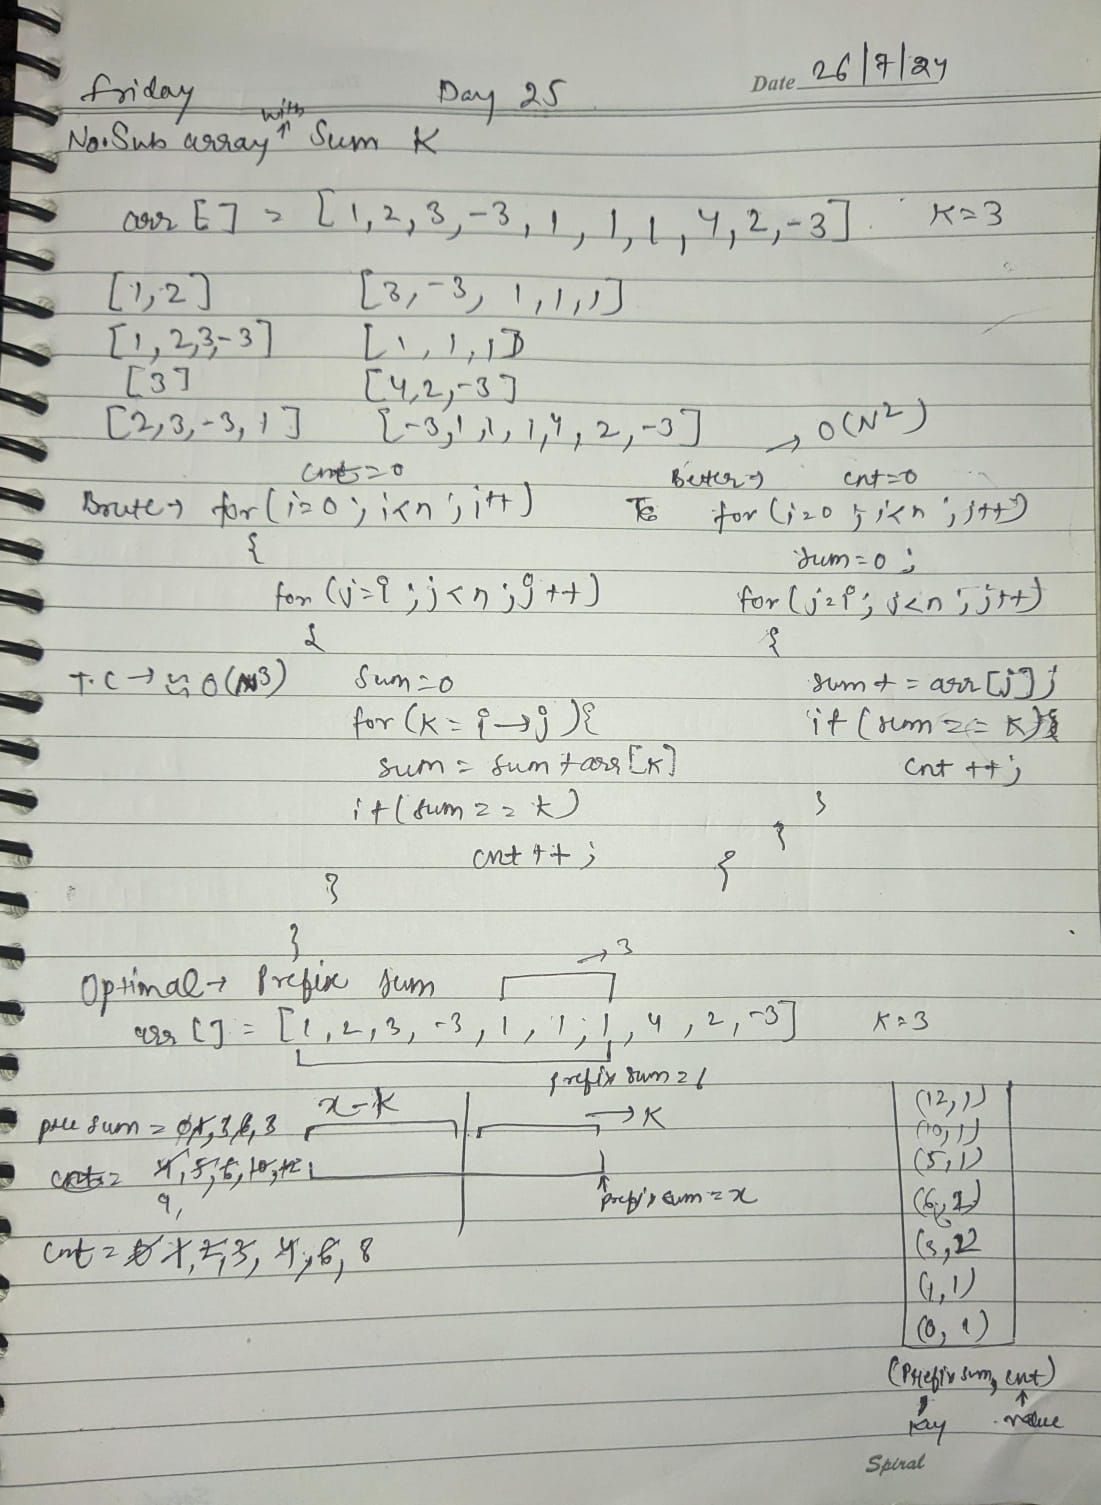 Friday Day 25 Date 26/7/24
No. Sub array with Sum K
arr [] = [1,2,3,-3,1,1,1,4,2,-3] K=3
[1,2] [3,-3, 1,1,1]
[1,2,3,-3] [1,1,1]
[3] [4,2,-3]
[2,3,-3,1] [-3,1,1,1,4,2,-3] → O(N²)
cnt=0 Better→ cnt=0
Brute→ for(i=0;i<n;i++) for(i=0;i<n;i++)
{ sum=0;
for(j=i;j<n;j++) for(j=i;j<n;j++)
{ {
T.C → ≈ O(N3) Sum=0 sum+=arr[j];
for(K=i→j){ if(sum==K){
sum = sum+arr[K] cnt++;
if(sum==k) }
cnt++; }
} }
}
→3
Optimal→ Prefix sum
arr[] = [1,2,3,-3,1,1,1,4,2,-3] K=3
prefix sum=6
x-k →K (12,1)
pre sum = 0,1,3,6,3 (10,1)
4,5,6,10,12, (5,1)
9, prefix sum=x (6,2)
cnt = 0 1,2,3,4,6,8 (3,2
(4,1)
(0,1)
(Prefix sum, cnt)
key value
Spiral